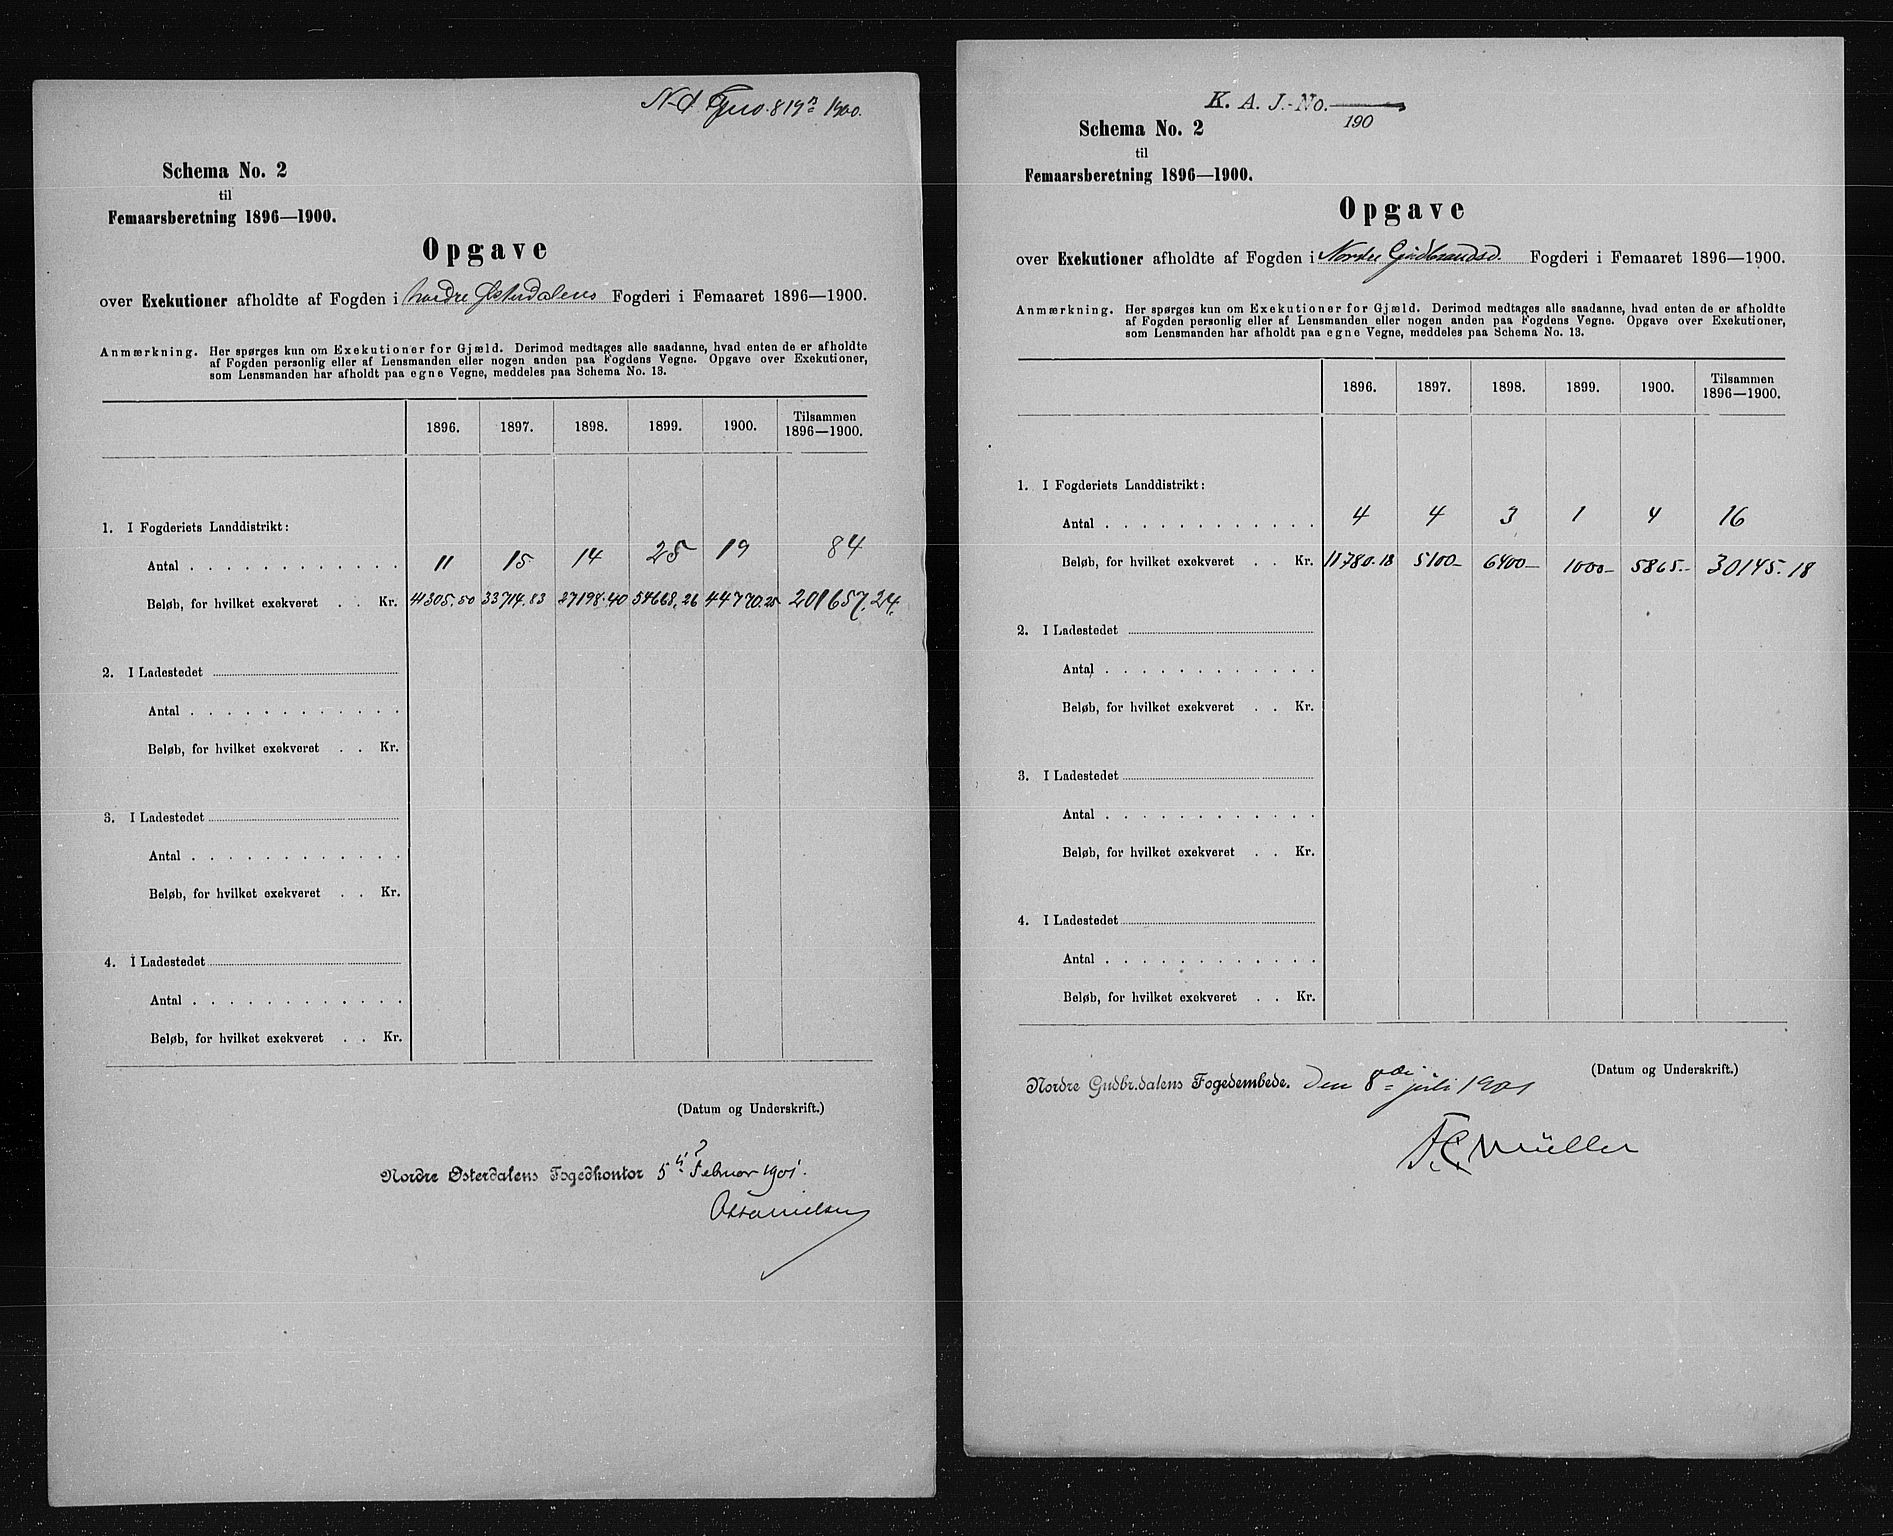 Schema No. 2
til
Femaarsberetning 1896—1900.
Opgave
over Exekutioner afholdte af Fogden i Nordre Østerdalens Fogderi i Femaaret 1896—1900.
Anmærkning. Her spørges kun om Exekutioner for Gjæld. Derimod medtages alle saadanne, hvad enten de er afholdte
af Fogden personlig eller af Lensmanden eller nogen anden paa Fogdens Vegne. Opgave over Exekutioner,
som Lensmanden har afholdt paa egne Vegne, meddeles paa Schema No. 13.
1896. 1897. 1898. 1899. 1900. Tilsammen
1896—1900.
1. I Fogderiets Landdistrikt:
Antal . . . . . . . . . . . . 11 15 14 25 19 84
Beløb, for hvilket exekveret . . Kr. 41305.50 33714.83 27198.40 54668.26 44770.25 201657.24.
2. I Ladestedet
Antal . . . . . . . . . . . .
Beløb, for hvilket exekveret . . Kr.
3. I Ladestedet
Antal . . . . . . . . . . . .
Beløb, for hvilket exekveret . . Kr.
4. I Ladestedet
Antal . . . . . . . . . . . .
Beløb, for hvilket exekveret . . Kr.
(Datum og Underskrift.)
Nordre Østerdalens Fogedkontor 5 Februar 1901.
K. A. J.-No.
190
Schema No. 2
til
Femaarsberetning 1896—1900.
Opgave
over Exekutioner afholdte af Fogden i Nordre Gudbrandsd. Fogderi i Femaaret 1896—1900.
Anmærkning. Her spørges kun om Exekutioner for Gjæld. Derimod medtages alle saadanne, hvad enten de er afholdte
af Fogden personlig eller af Lensmanden eller nogen anden paa Fogdens Vegne. Opgave over Exekutioner,
som Lensmanden har afholdt paa egne Vegne, meddeles paa Schema No. 13.
1896. 1897. 1898. 1899. 1900. Tilsammen
1896—1900.
1. I Fogderiets Landdistrikt:
Antal . . . . . . . . . . . . 4 4 3 1 4 16
Beløb, for hvilket exekveret . . Kr. 11780.18 5100— 6400— 1000— 5865.— 30145.18
2. I Ladestedet
Antal . . . . . . . . . . . .
Beløb, for hvilket exekveret . . Kr.
3. I Ladestedet
Antal . . . . . . . . . . . .
Beløb, for hvilket exekveret . . Kr.
4. I Ladestedet
Antal . . . . . . . . . . . .
Beløb, for hvilket exekveret . . Kr.
(Datum og Underskrift.)
Nordre Gudbr.dalens Fogedembede. Den 8de juli 1901
F.C. Müller